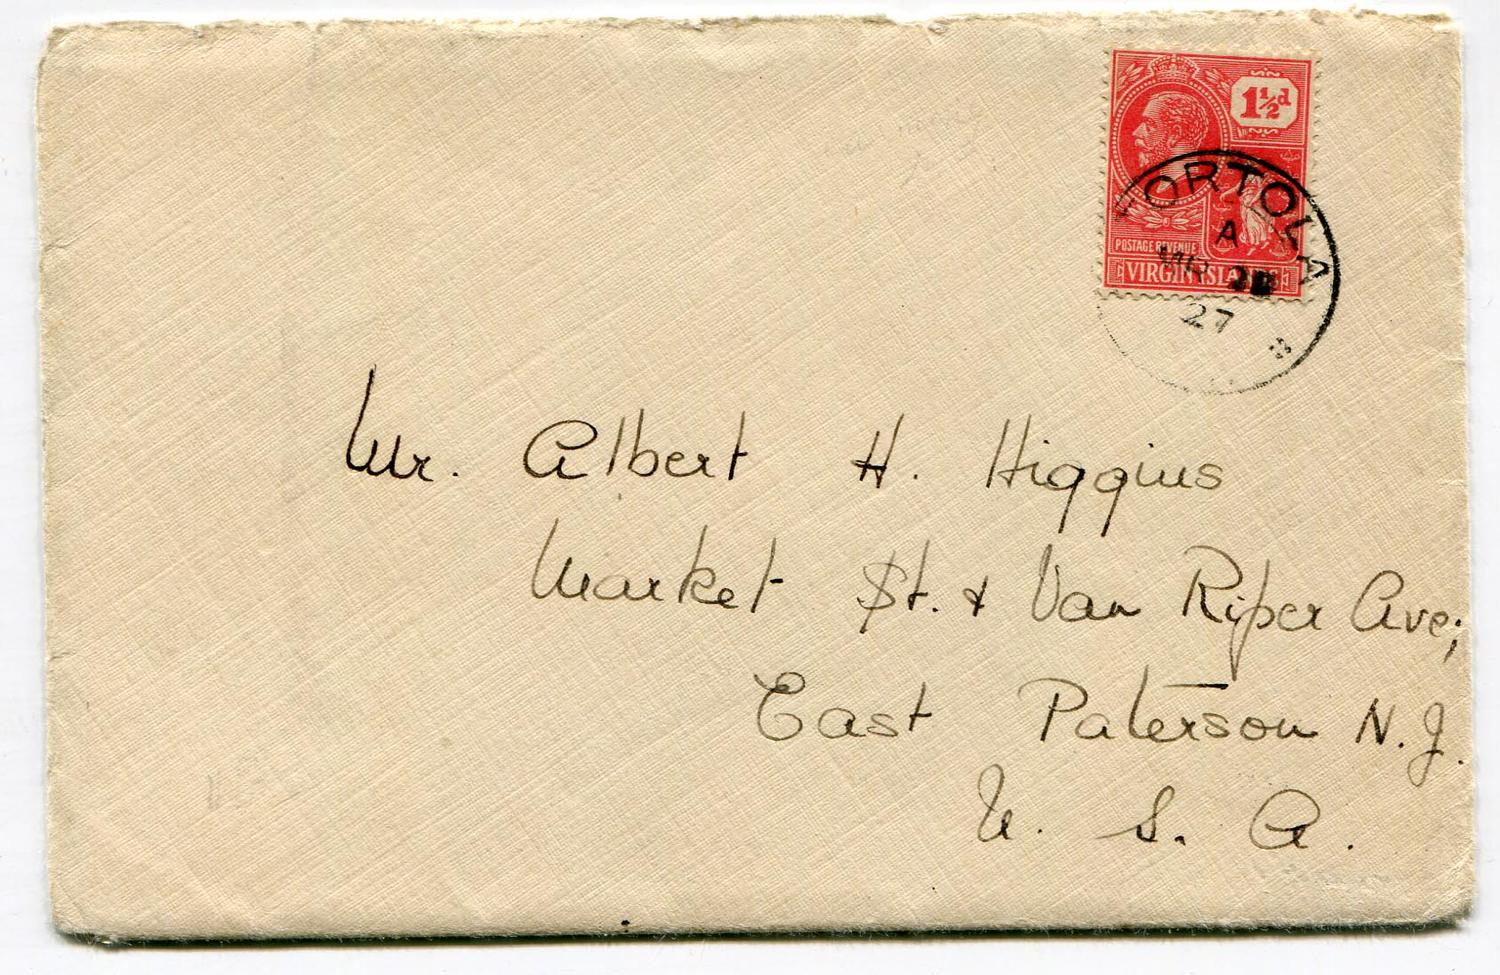 1½d
POSTAGE REVENUE
VIRGIN ISLA
TORTOLA
A
27
Mr. Albert H. Higgins
Market St. & Van Riper Ave;
East Paterson N. J.
U. S. A.